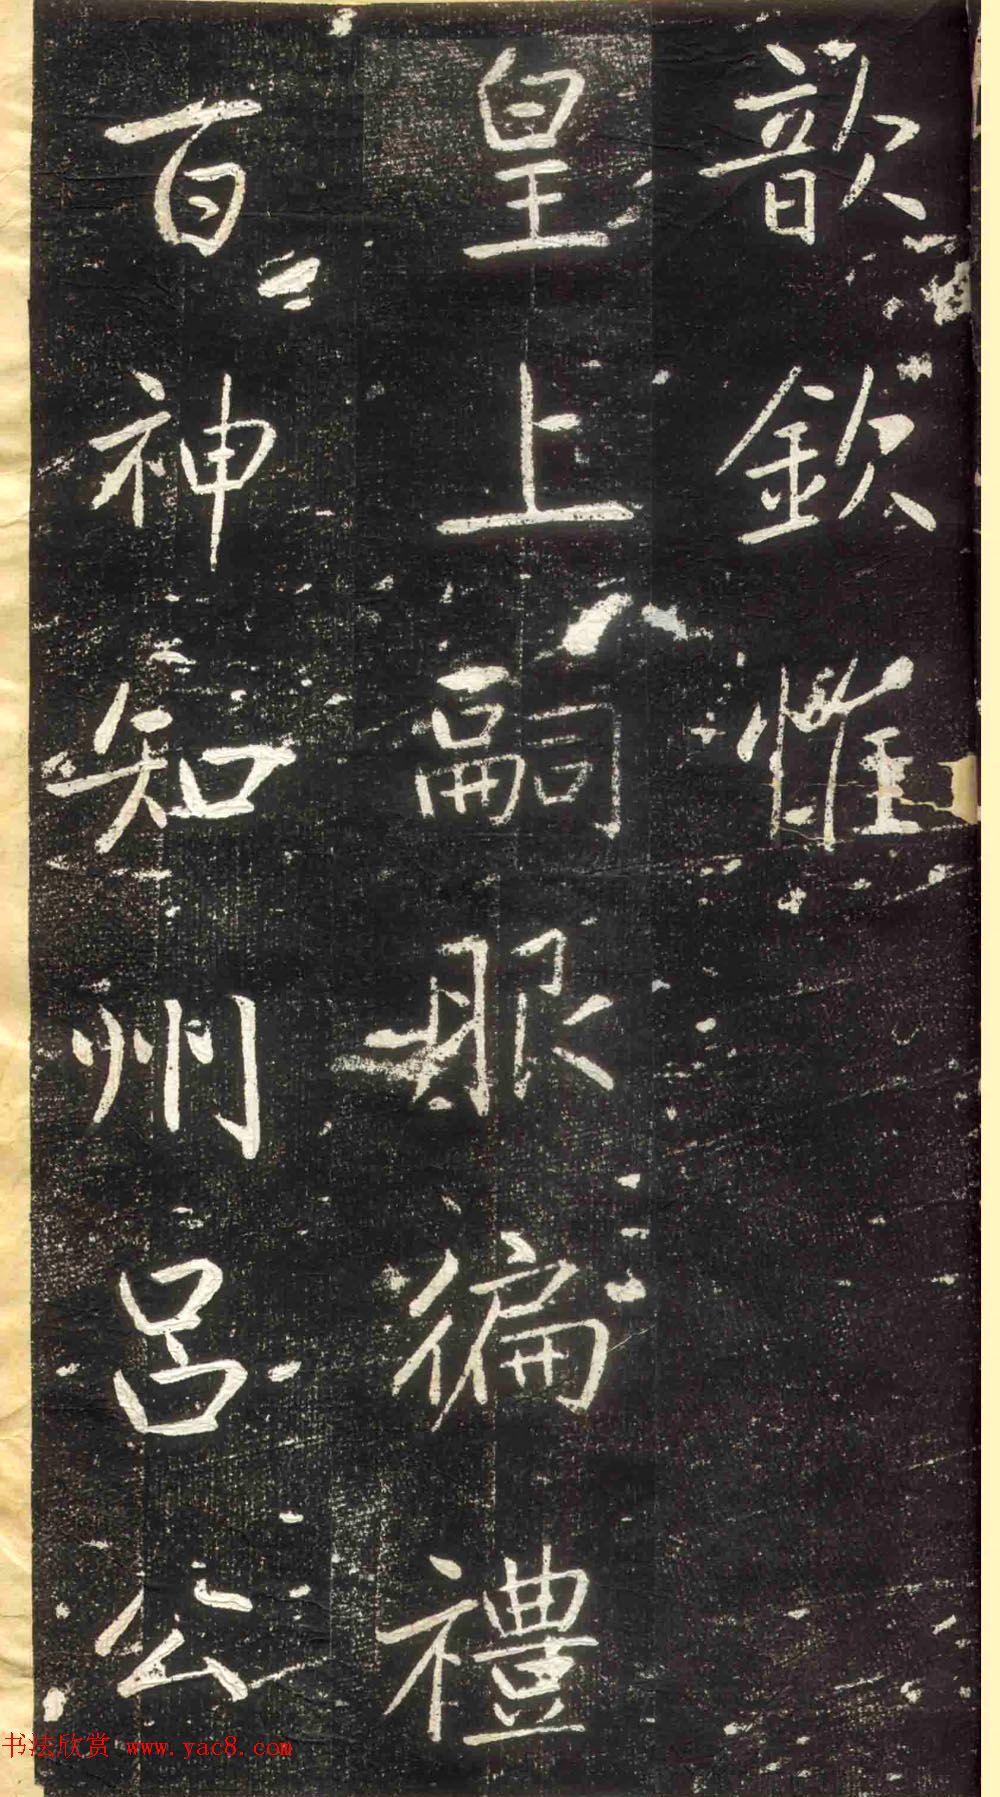 歆欽惟
皇上嗣服徧禮
百神知州呂公
书法欣赏 www.yac8.com